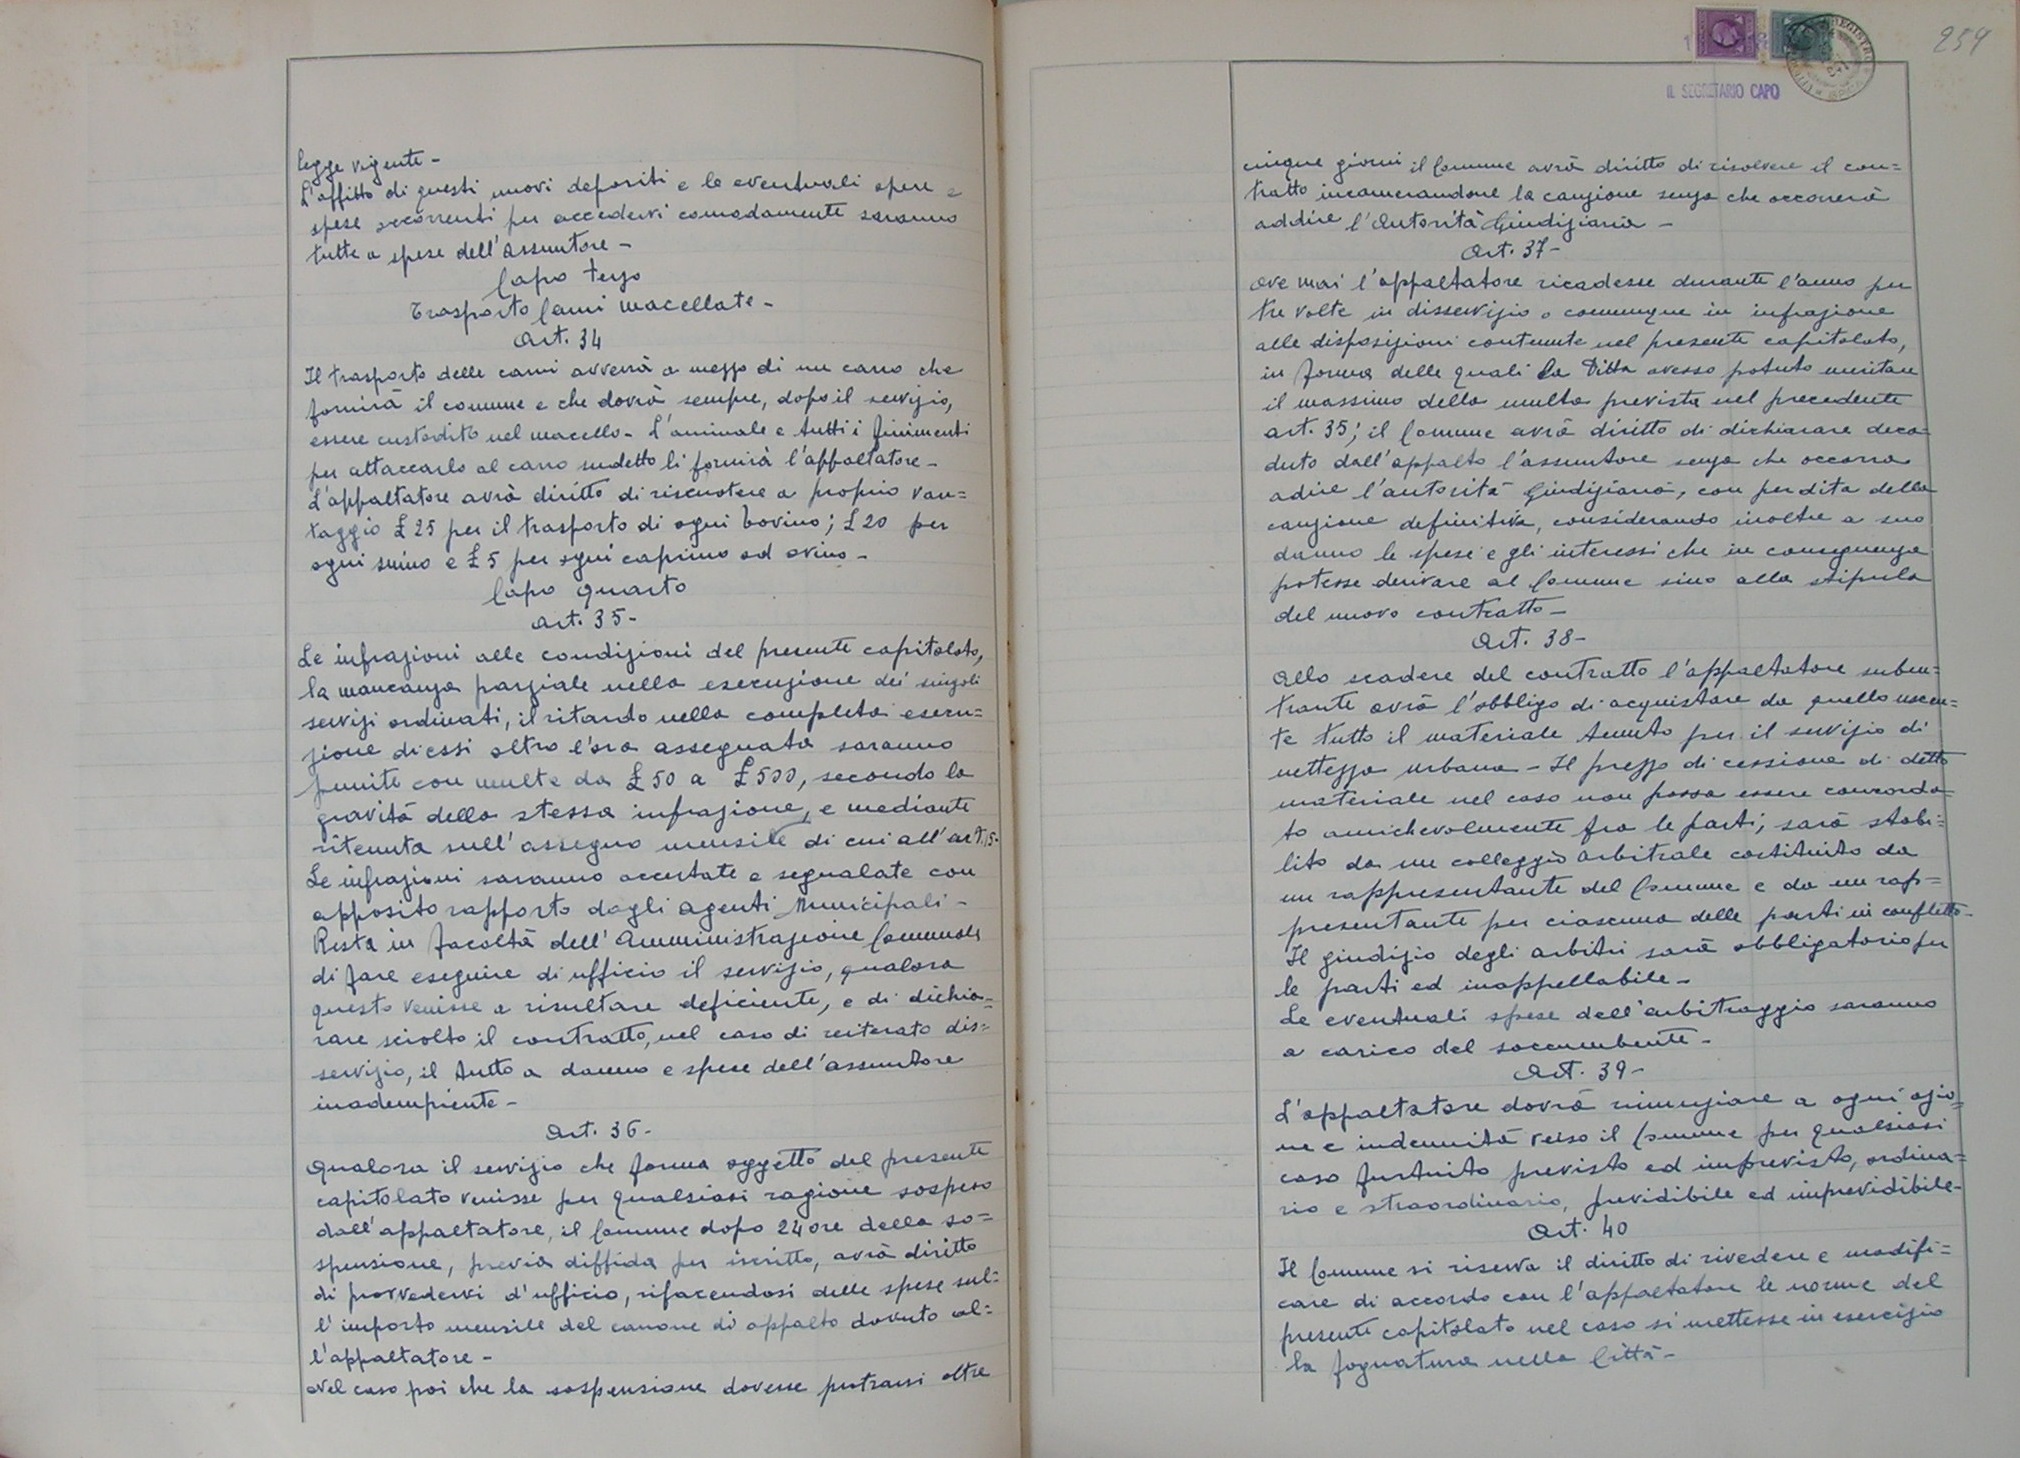 legge vigente -
L'affitto di questi nuovi depositi e le eventuali opere e
spese occorrenti per accedervi comodamente saranno
tutte a spese dell'assuntore -
Capo terzo
Trasporto Carni macellate -
Art. 34
Il trasporto delle carni avverrà a mezzo di un carro che
fornirà il comune e che dovrà sempre, dopo il servizio,
essere custodito nel macello - L'animale e tutti i finimenti
per attaccarlo al carro sudetto li fornirà l'appaltatore -
L'appaltatore avrà diritto di riscuotere a proprio van=
taggio £ 25 per il trasporto di ogni bovino; £ 20 per
ogni suino e £ 5 per ogni caprino od ovino -
Capo quarto
Art. 35 -
Le infrazioni alle condizioni del presente capitolato,
la mancanza parziale nella esecuzione dei singoli
servizi ordinati, il ritardo nella completa esecu=
zione di essi oltre l'ora assegnata saranno
punite con multe da £ 50 a £ 500, secondo la
gravità della stessa infrazione, e mediante
ritenuta sull'assegno mensile di cui all'art. 15-
Le infrazioni saranno accertate e segnalate con
apposito rapporto dagli agenti Municipali -
Resta in facoltà dell'Amministrazione Comunale
di fare eseguire di ufficio il servizio, qualora
questo venisse a risultare deficiente, e di dichia=
rare sciolto il contratto, nel caso di reiterato dis=
servizio, il tutto a danno e spese dell'assuntore
inadempiente -
Art. 36 -
Qualora il servizio che forma oggetto del presente
capitolato venisse per qualsiasi ragione sospeso
dall'appaltatore, il Comune dopo 24 ore della so=
spensione, previa diffida per iscritto, avrà diritto
di provvedervi d'ufficio, rifacendosi delle spese sul=
l'importo mensile del canone di appalto dovuto al=
l'appaltatore -
Nel caso poi che la sospensione dovesse protrarsi oltre
254
IL SEGRETARIO CAPO
cinque giorni il Comune avrà diritto di risolvere il con=
tratto incamerandone la cauzione senza che occorrerà
addire l'Autorità Giudiziaria -
Art. 37 -
Ove mai l'appaltatore ricadesse durante l'anno per
tre volte in disservizio o comunque in infrazione
alle disposizioni contenute nel presente capitolato,
in forma delle quali la Ditta avesse potuto meritare
il massimo della multa prevista nel precedente
art. 35; il Comune avrà diritto di dichiarare deca=
duto dall'appalto l'assuntore senza che occorra
adire l'autorità Giudiziaria, con perdita della
cauzione definitiva, considerando inoltre a suo
danno le spese e gli interessi che in conseguenza
potesse derivare al Comune sino alla stipula
del nuovo contratto -
Art. 38 -
Allo scadere del contratto l'appaltatore suben=
trante avrà l'obbligo di acquistare da quello uscen=
te tutto il materiale tenuto per il servizio di
nettezza urbana - Il prezzo di cessione di detto
materiale nel caso non possa essere concorda=
to amichevolmente fra le parti, sarà stabi=
lito da un colleggio arbitrale costituito da
un rappresentante del Comune e da un rap=
presentante per ciascuna delle parti in conflitto -
Il giudizio degli arbitri sarà obbligatorio per
le parti ed inappellabile -
Le eventuali spese dell'arbitraggio saranno
a carico del soccombente -
Art. 39 -
L'appaltatore dovrà rinunziare a ogni azio=
ne e indennità verso il Comune per qualsiasi
caso fortuito previsto ed imprevisto, ordina=
rio e straordinario, previdibile ed imprevidibile -
Art. 40
Il Comune si riserva il diritto di rivedere e modifi=
care di accordo con l'appaltatore le norme del
presente capitolato nel caso si mettesse in esercizio
la fognatura nella Città -